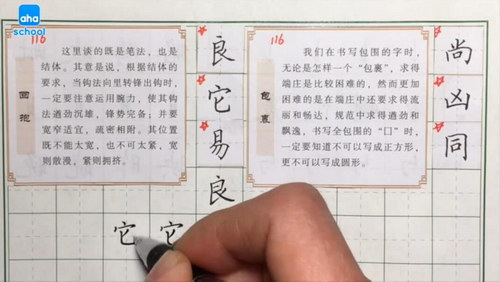 aha
school
116
这里谈的既是笔法，也是
结体，其意是说，根据结体的
要求，当钩法向里转锋出钩时，
一定要注意运用腕力，使其钩
法遒劲沉雄，锋势完备；并要
宽窄适宜，疏密相附。其位置
既不能太宽，也不可太紧，宽
则散漫，紧则拥挤。
回抱
良
它
易
良
116
我们在书写包围的字时，
无论是怎样一个“包裹”，求得
端庄是比较困难的，然而更加
困难的是在端庄中还要求得流
丽和畅达，规范中求得遒劲和
飘逸，书写全包围的“口”时，
一定要知道不可以写成正方形，
更不可以写成圆形。
包裹
尚
凶
同
它 它